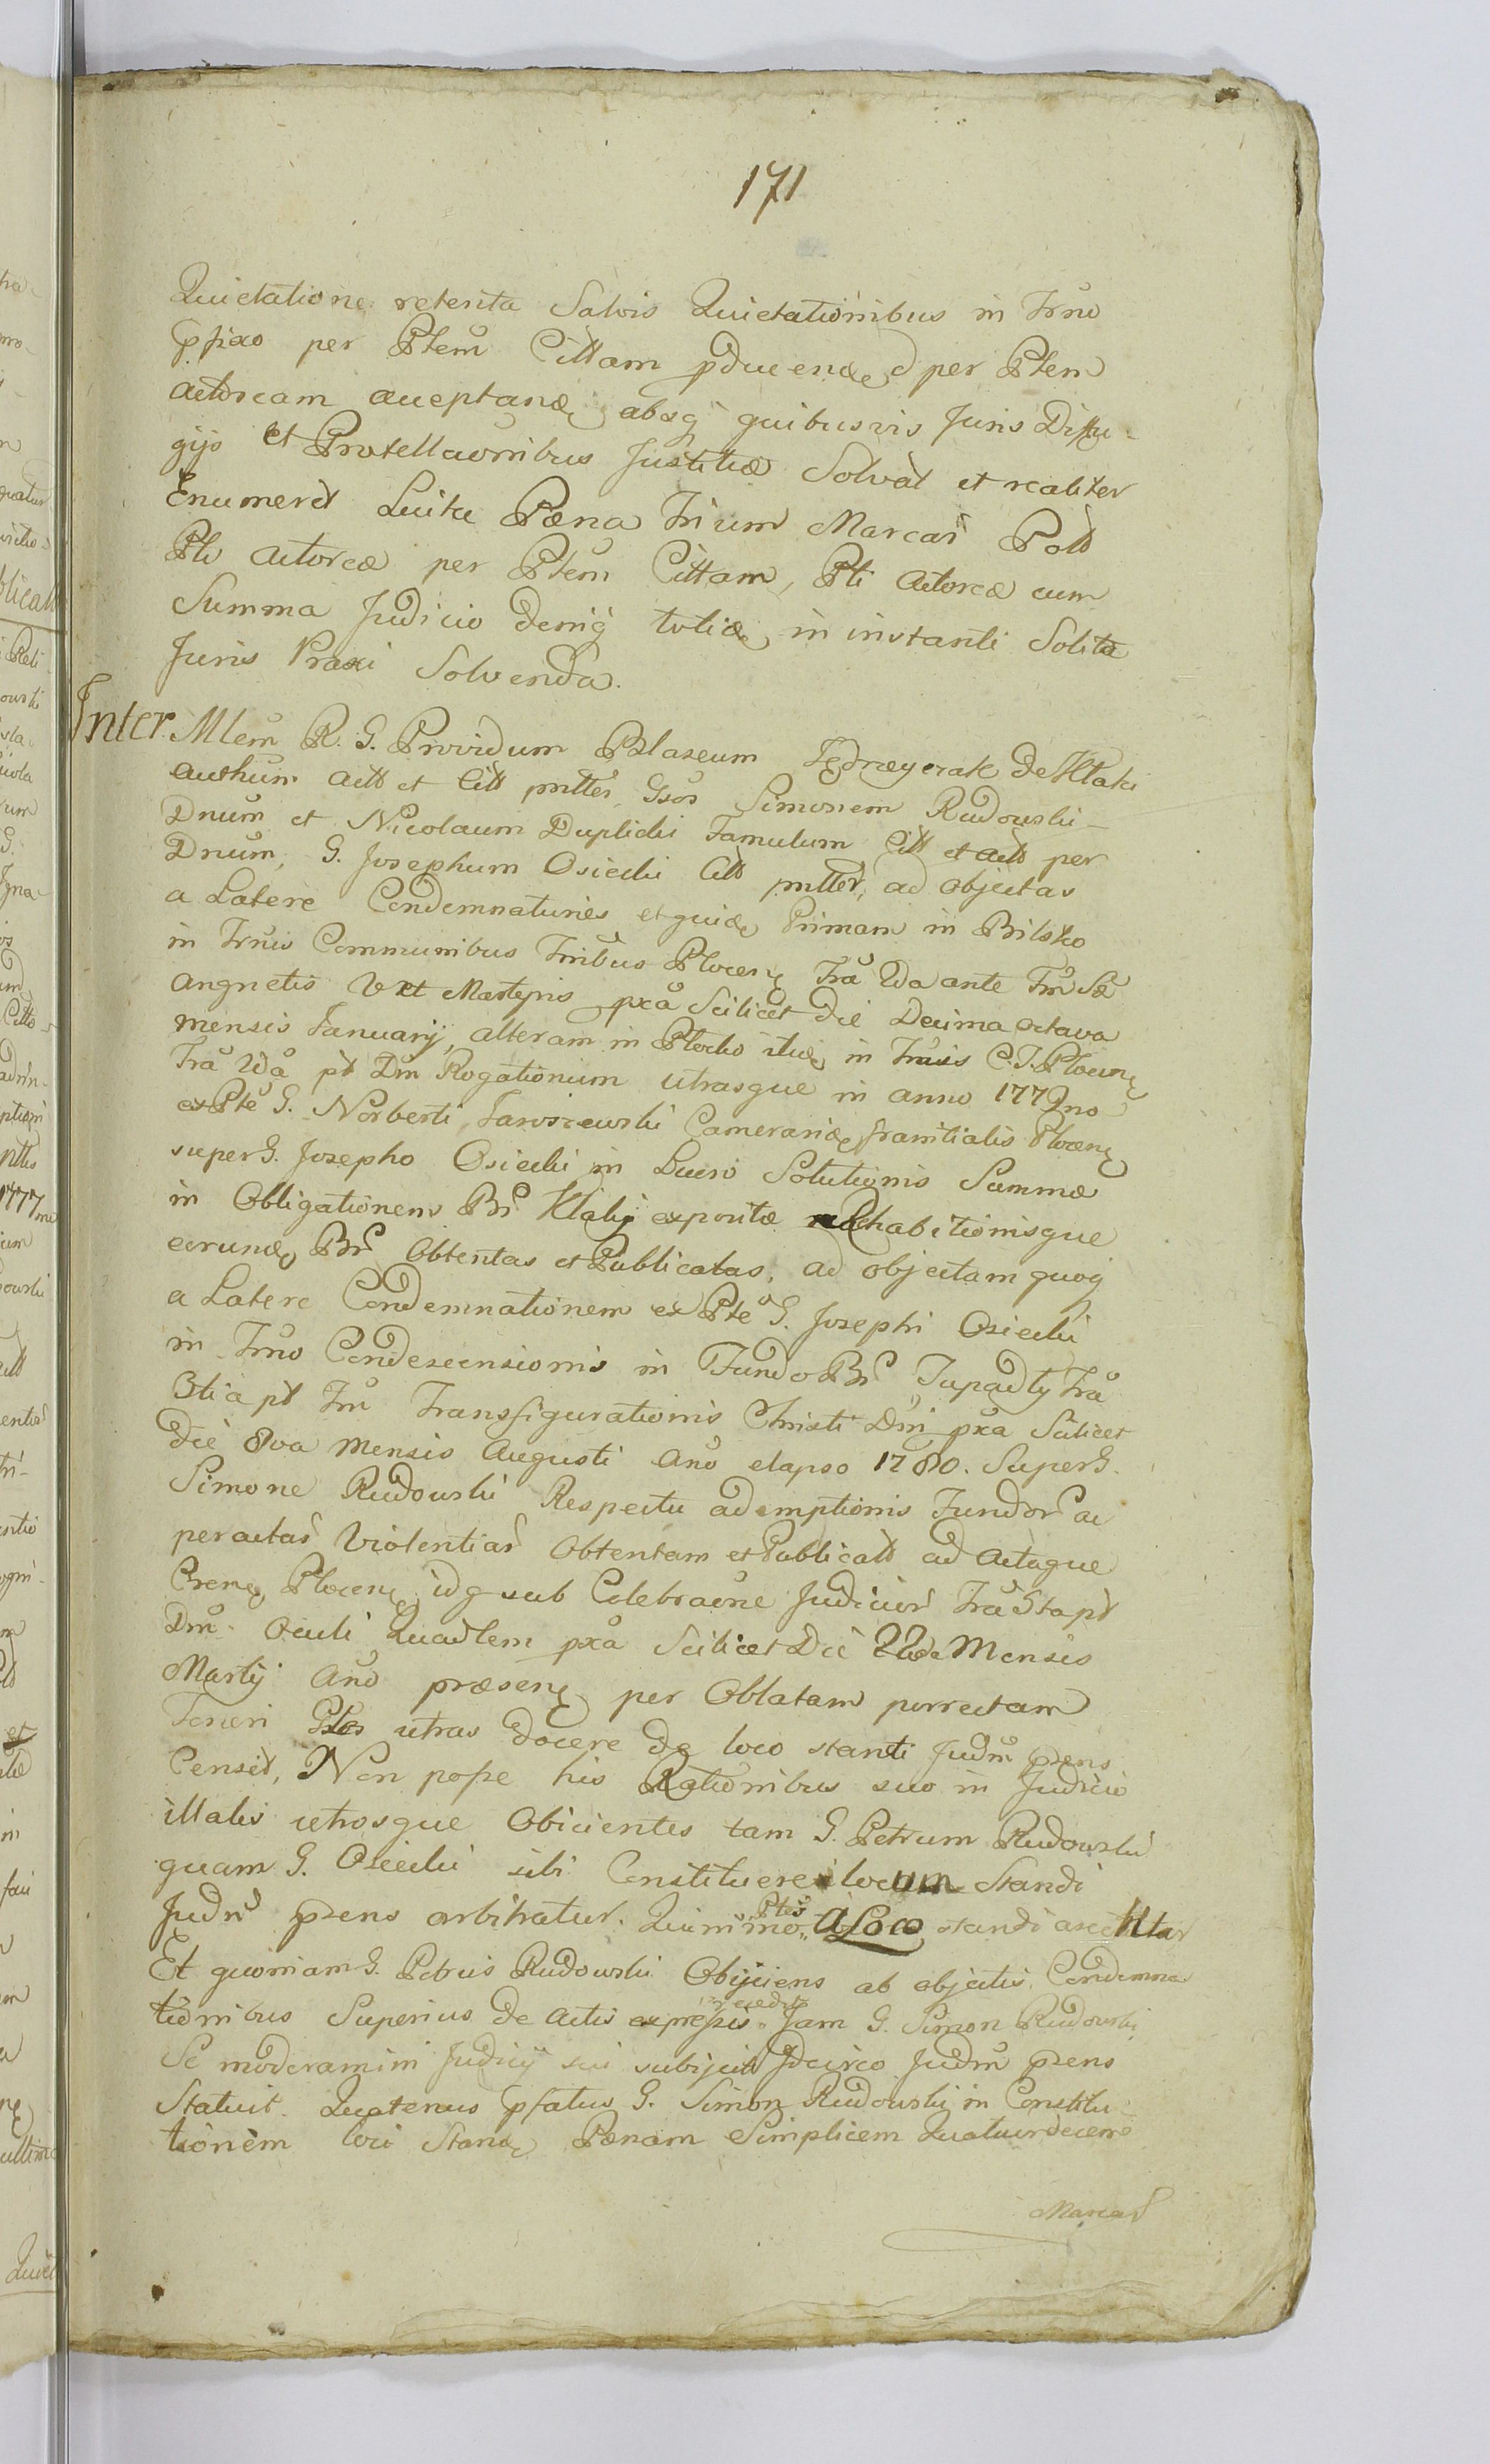 171
Quietatione retenta Salvis Quietationibus in Trno
pfixo per Ptem Cittam pducendę d per Ptem
actoream acceptandę absq quibusvis Juris Diffu-
gijs et Protellaonibus Justitiæ Solvat et realiter
Enumeret Luitu Pæna Trium Marcar Poll
Pti actoreæ per Ptem Cittam, Pti actoreæ cum
Summa Judicio deniq totię in instanti Solita
Juris Praxi Solvenda.
Inter Mlem R. G. Providum Blaseum Jędrzeyczak de Ktaki
Actt et Citt pntter Gsos Simonem Rudowski
Dnum et Nicolaum Duplicki Famulum Citt et Actt per
Dnum, G. Josephum Osiecki Citt pntter, ad objectas
a Latere Condemnationes et quidę Primam in Bilsko
in Trnis Communibus Trribus Plocenę Fra 2da ante Fm Sæ
Angnetis V et Martyris pxa Scilicet die Decima octava
mensis January, alteram in Plocko itidę in Trnis C. T. Plocenę
Fra 2da pt Dm Rogationum utrasque in anno 1779no
ex Pte G. Norberti Jaroszewski Camerarię Granitialis Plocenę
super G. Josepho Osiecki in Lucro Solutionis Summæ
in Obligationem Br Ktaky expositæ Rehabitionisque
eorundę Br Obtentas et Publicatas, ad objectam quoq
a Latere Condemnationem ex Pte G. Josephi Osiecki
in Trno Condescensionis in Fundo Br Tupadly Fra
3tia pt Fm Transfigurationis Christi Dni pxa Scilicet
die 8va Mensis Augusti Ano elapso 1780. Super G.
Simone Rudowski Respectu ademptionis Fundor ac
peractar Violentiar Obtentam et Publicatt ad Actaque
Crenę Plocenę idq sub Celebraone Judicior Fra 5ta pt
Dm Oculi Quadlem pxa Scilicet Die 22da Mensis
Martij Ano præsenę per Oblatam porrectam
Teneri Ptes utras docere de loco standi Judm Psens
Censet, Non posse his Rationibus suo in Judicio
illatis utrosque Obicientes tam G. Petrum Rudowski
quam G. Osiecki sibi Constituere locum Standi
Judm Psens arbitratur. Quinimo Ptes a Loco standi
Et quoniam G. Petrus Rudowski Obijciens ab objectis Condemna
tionibus Superius de Actis expressis recedit Jam G. Simon Rudowski
Se moderamini Judicij sui subijcit Idcirco Judm Psens
Statuit Quatenus pfatus G. Simon Rudowski in Constitu
tionem loci Standę Pænam Simplicem Quatuordecem
Marcar